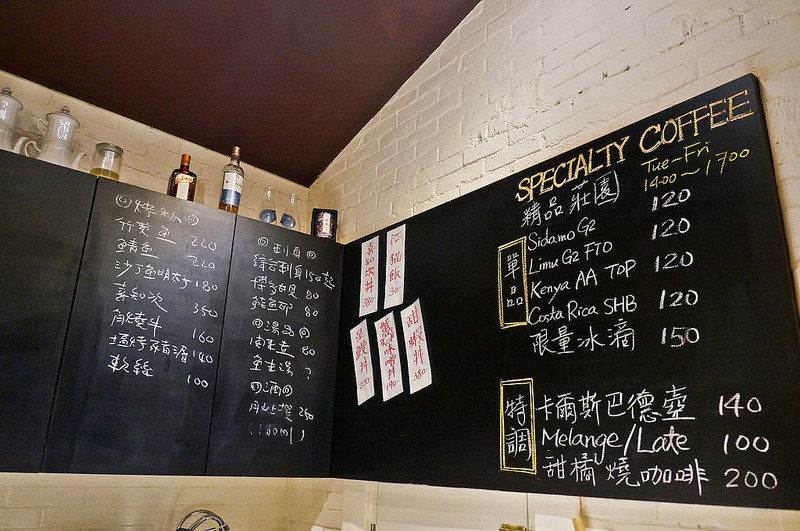 烤物
竹莢魚 220
鯖魚 220
沙丁魚明太子 180
喜知次 350
角燒斗 160
140
軟絲 100
刺身
綜合刺身 150起
80
鮭魚卵 80
湯品
80
魚味湯 ?
酒
250
(180ml)
喜知次丼 380
貓飯 30
鰻丼 220
190
甜蝦丼 380
SPECIALTY COFFEE
Tue-Fri
14:00~1700
精品莊園 120
單品
Sidamo G2 120
Limu G2 FTO 120
Kenya AA TOP 120
Costa Rica SHB 120
限量冰滴 150
特調
卡爾斯巴德壺 140
Melange/Late 100
甜橘燒咖啡 200